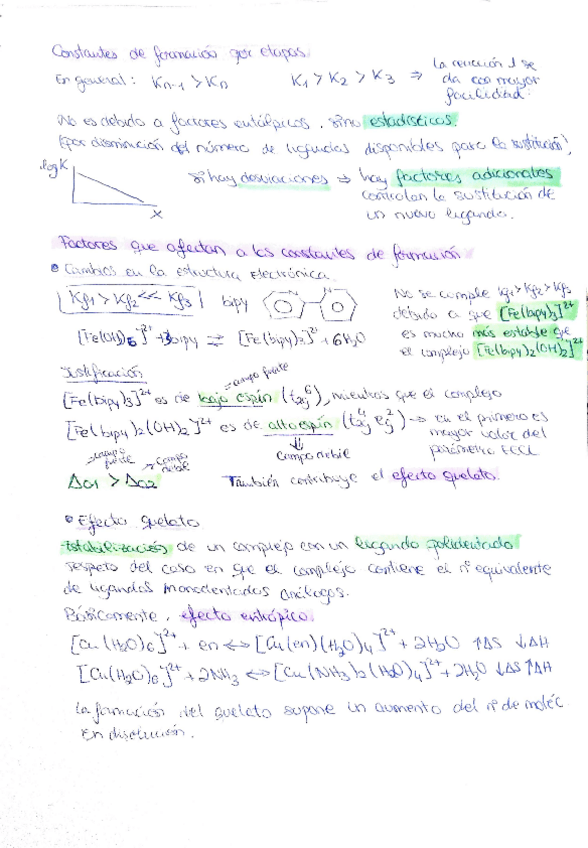 Constantes de formación por etapas.
En general: Kn-1 > Kn   K1 > K2 > K3 ⇒ la reacción 1 se da con mayor facilidad.
No es debido a factores entálpicos, sino estadísticos.
(por disminución del número de ligandos disponibles para la sustitución)
log K
x
si hay desviaciones ⇒ hay factores adicionales
controlan la sustitución de
un nuevo ligando.
Factores que afectan a las constantes de formación
• Cambios en la estructura electrónica.
Kf1 > Kf2 << Kf3   bipy
N   N
No se cumple Kf1 > Kf2 > Kf3
debido a que [Fe(bipy)3]2+
es mucho más estable que
el complejo [Fe(bipy)2(OH)2]2+
[Fe(OH)6]2+ + 3bipy ⇌ [Fe(bipy)3]2+ + 6H2O
Justificación
→campo fuerte
[Fe(bipy)3]2+ es de bajo espín (t2g6), mientras que el complejo
[Fe(bipy)2(OH)2]2+ es de alto espín (t2g4 eg2) → en el primero es
mayor valor del
parámetro EECL
⇓
campo débil
→campo fuerte   →campo débil
Δo1 > Δo2   También contribuye el efecto quelato.
• Efecto quelato
Estabilización de un complejo con un ligando polidentado
respeto del caso en que el complejo contiene el nº equivalente
de ligandos monodentados análogos.
Básicamente, efecto entrópico.
[Cu(H2O)6]2+ + en ⇔ [Cu(en)(H2O)4]2+ + 2H2O ↑ΔS ↓ΔH
[Cu(H2O)6]2+ + 2NH3 ⇔ [Cu(NH3)2(H2O)4]2+ + 2H2O ↓ΔS ↑ΔH
La formación del quelato supone un aumento del nº de moléc
en disolución.